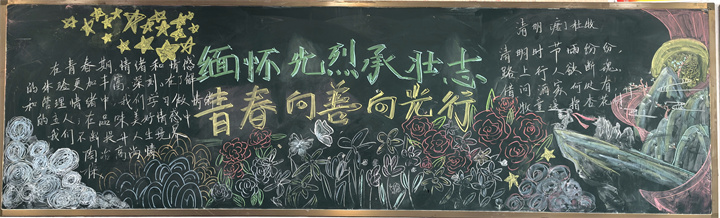 在青春期,情绪和情感
的体验更加丰富、深刻,在了解
和管理情绪中,我们学习做情绪
的主人;在品味美好情感中
我们不断提升人生境界
陶冶高尚情
缅怀先烈承壮志
青春向善向光行
清明 唐 杜牧
清明时节雨纷纷,
路上行人欲断魂。
借问酒家何处有,
牧童遥指杏花